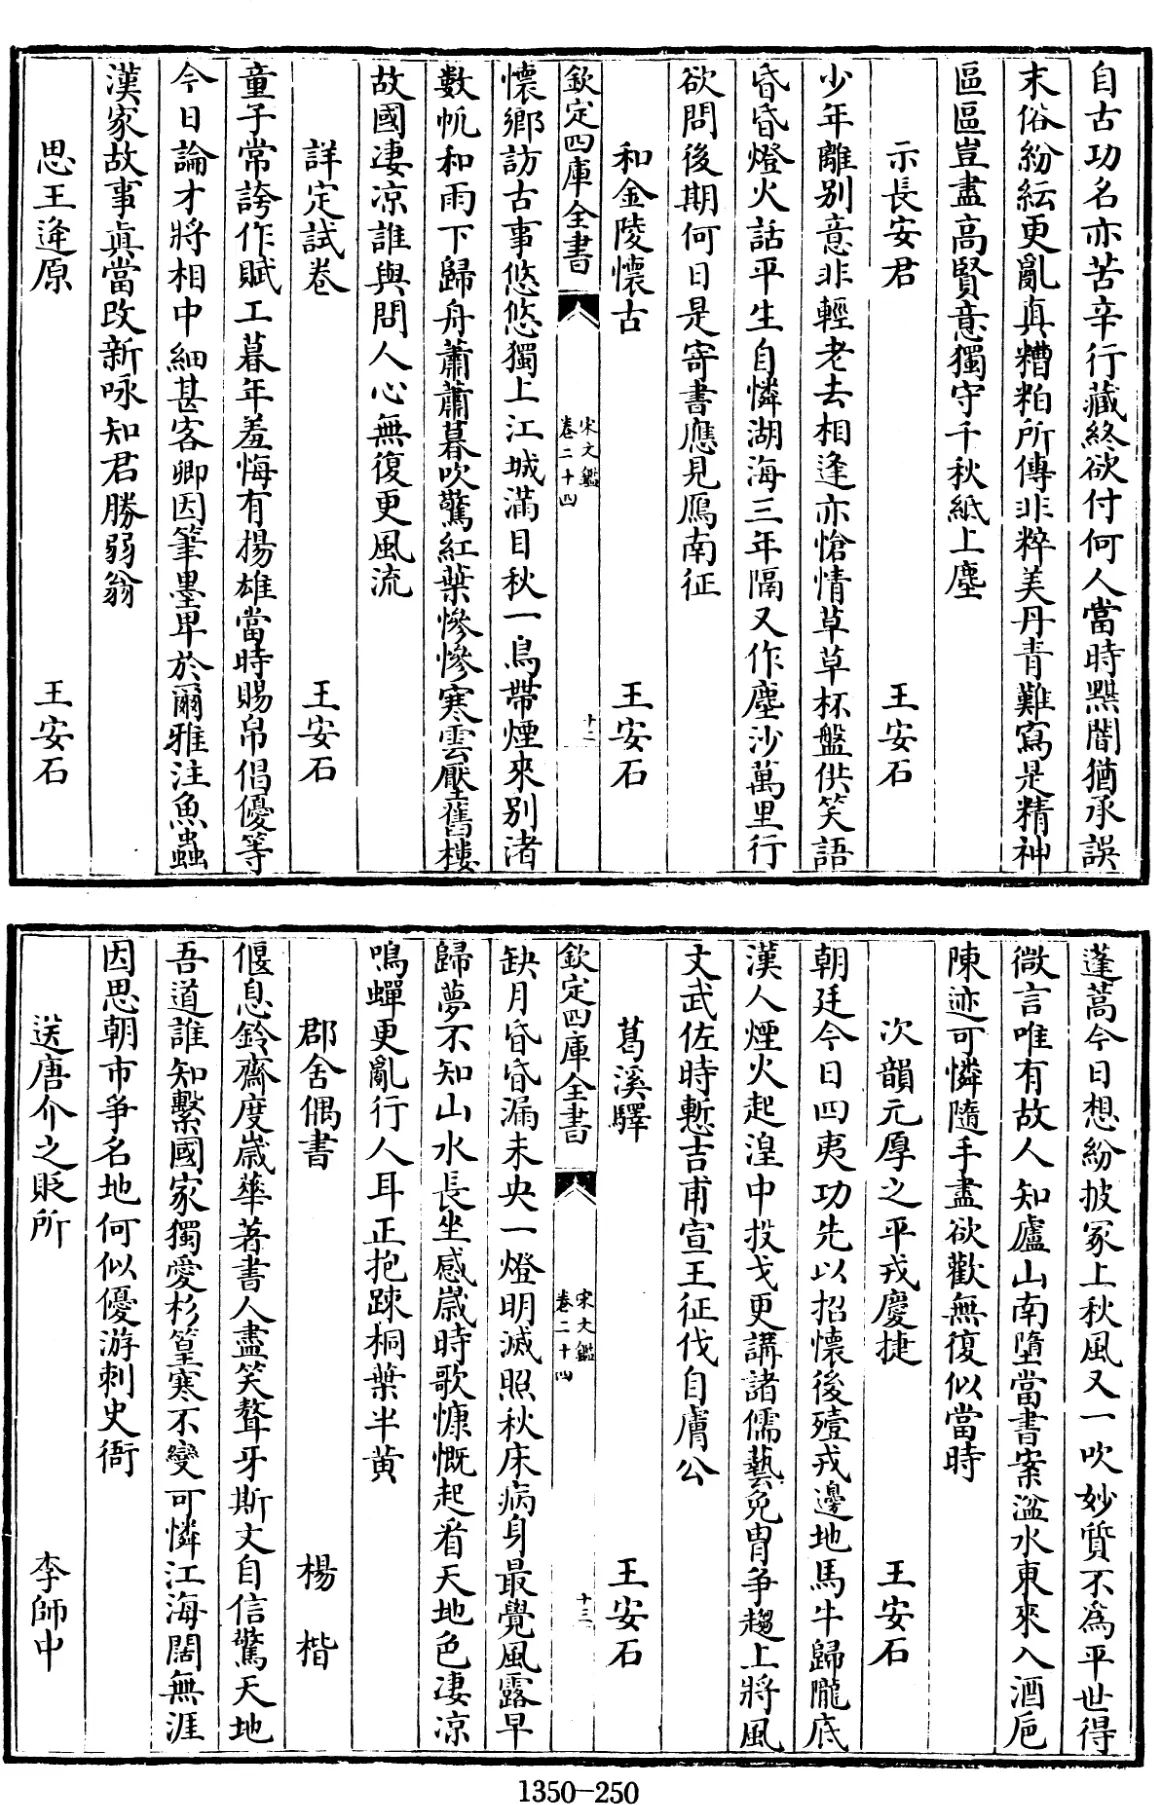 自古功名亦苦辛行藏終欲付何人當時黮闇猶承誤
末俗紛紜更亂真糟粕所傳非粹美丹青難寫是精神
區區豈盡高賢意獨守千秋紙上塵
示長安君 王安石
少年離別意非輕老去相逢亦愴情草草杯盤供笑語
昏昏燈火話平生自憐湖海三年隔又作塵沙萬里行
欲問後期何日是寄書應見鴈南征
和金陵懷古 王安石
欽定四庫全書 宋文鑑 卷二十四 十二
懷鄉訪古事悠悠獨上江城滿目秋一鳥帶煙來別渚
數帆和雨下歸舟蕭蕭暮吹驚紅葉慘慘寒雲壓舊樓
故國凄凉誰與問人心無復更風流
詳定試卷 王安石
童子常誇作賦工暮年羞悔有揚雄當時賜帛倡優等
今日論才將相中細甚客卿因筆墨卑於爾雅注魚蟲
漢家故事真當改新咏知君勝弱翁
思王逄原 王安石
蓬蒿今日想紛披冢上秋風又一吹妙質不為平世得
微言唯有故人知廬山南墮當書案湓水東來入酒巵
陳迹可憐隨手盡欲歡無復似當時
次韻元厚之平戎慶捷 王安石
朝廷今日四夷功先以招懷後殪戎邊地馬牛歸隴底
漢人煙火起湟中投戈更講諸儒藝免胄爭趨上將風
文武佐時慙吉甫宣王征伐自膚公
葛溪驛 王安石
欽定四庫全書 宋文鑑 卷二十四 十三
缺月昏昏漏未央一燈明滅照秋床病身最覺風露早
歸夢不知山水長坐感歲時歌慷慨起看天地色凄凉
鳴蟬更亂行人耳正抱踈桐葉半黄
郡舍偶書 楊楷
偃息鈴齋度歲華著書人盡笑聱牙斯文自信驚天地
吾道誰知繫國家獨愛杉篁寒不變可憐江海闊無涯
因思朝市爭名地何似優游刺史衙
送唐介之貶所 李師中
1350-250